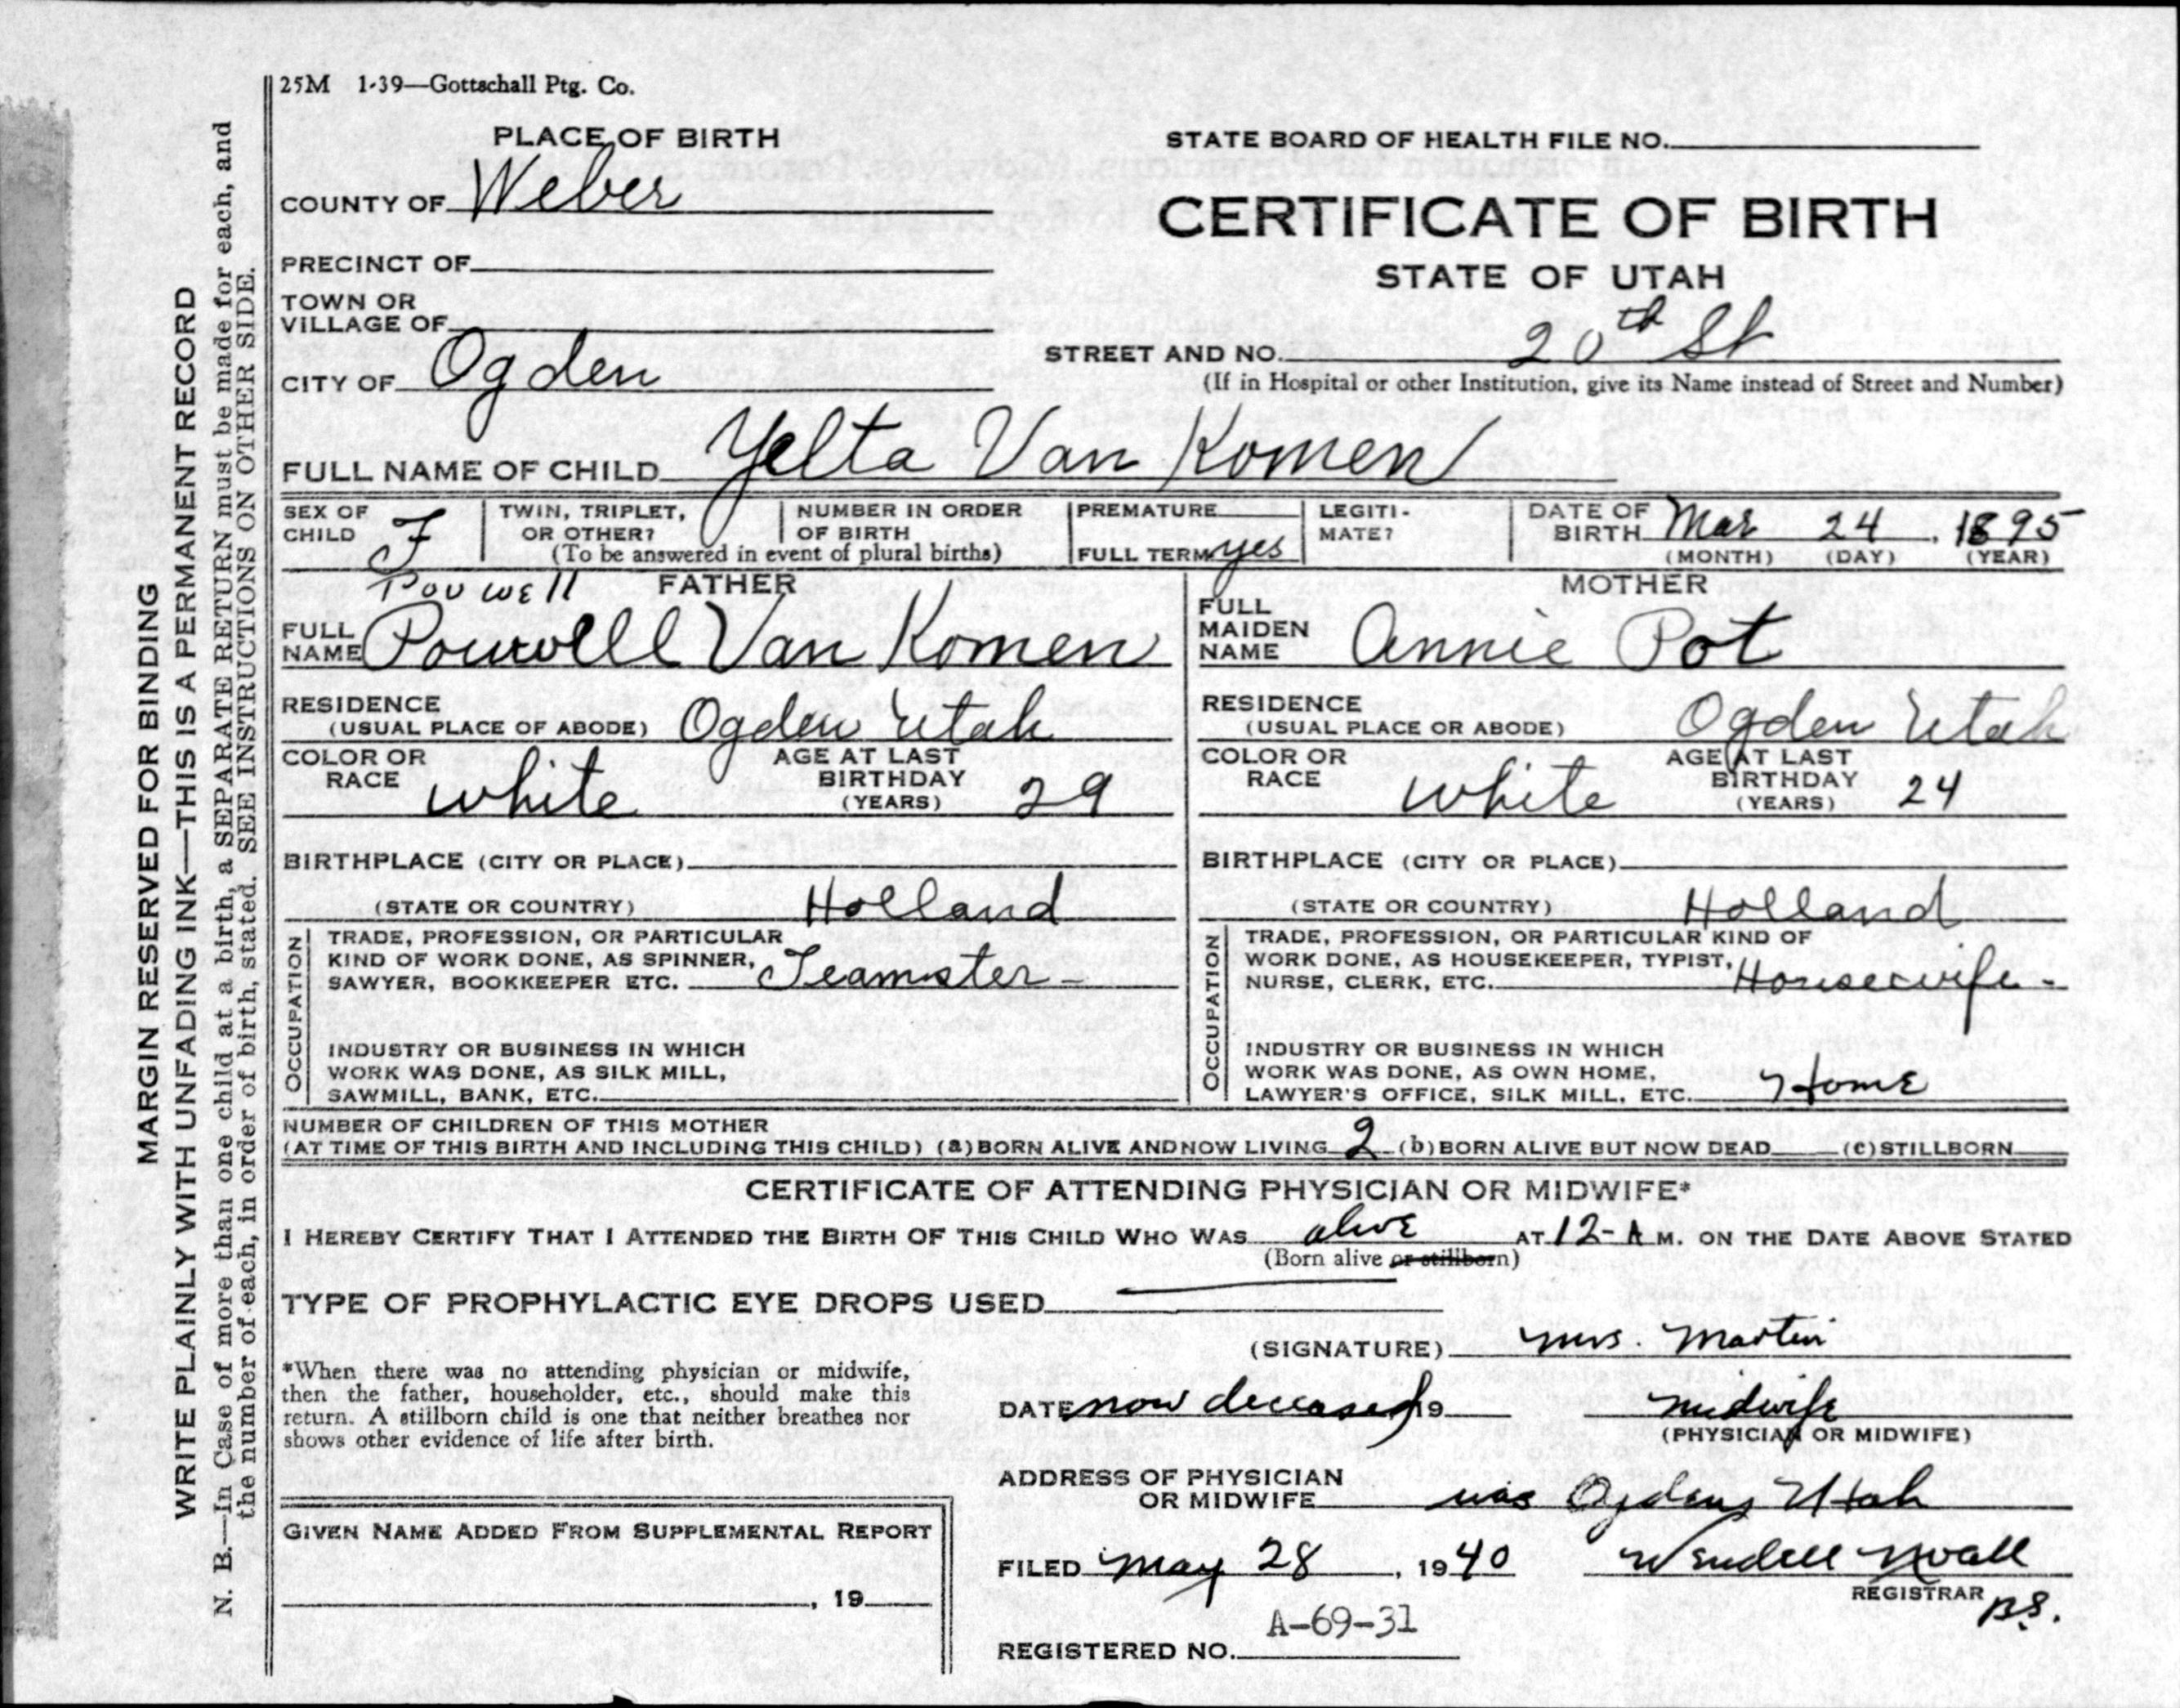 25M 1-39—Gottschall Ptg. Co.
PLACE OF BIRTH
COUNTY OF Weber
PRECINCT OF
TOWN OR
VILLAGE OF
CITY OF Ogden
STATE BOARD OF HEALTH FILE NO.
CERTIFICATE OF BIRTH
STATE OF UTAH
STREET AND NO. 20th St
(If in Hospital or other Institution, give its Name instead of Street and Number)
FULL NAME OF CHILD Yelta Van Komen
SEX OF
CHILD F
TWIN, TRIPLET,
OR OTHER?
NUMBER IN ORDER
OF BIRTH
(To be answered in event of plural births)
PREMATURE
FULL TERM yes
LEGITI-
MATE?
DATE OF
BIRTH Mar 24, 1895
(MONTH) (DAY) (YEAR)
FATHER
Pouwell
FULL
NAME Pouwell Van Komen
RESIDENCE
(USUAL PLACE OF ABODE) Ogden Utah
COLOR OR
RACE white
AGE AT LAST
BIRTHDAY
(YEARS) 29
BIRTHPLACE (CITY OR PLACE)
(STATE OR COUNTRY) Holland
OCCUPATION
TRADE, PROFESSION, OR PARTICULAR
KIND OF WORK DONE, AS SPINNER,
SAWYER, BOOKKEEPER ETC. Teamster -
INDUSTRY OR BUSINESS IN WHICH
WORK WAS DONE, AS SILK MILL,
SAWMILL, BANK, ETC.
MOTHER
FULL
MAIDEN
NAME Annie Pot
RESIDENCE
(USUAL PLACE OR ABODE) Ogden Utah
COLOR OR
RACE white
AGE AT LAST
BIRTHDAY
(YEARS) 24
BIRTHPLACE (CITY OR PLACE)
(STATE OR COUNTRY) Holland
OCCUPATION
TRADE, PROFESSION, OR PARTICULAR KIND OF
WORK DONE, AS HOUSEKEEPER, TYPIST,
NURSE, CLERK, ETC. Housewife -
INDUSTRY OR BUSINESS IN WHICH
WORK WAS DONE, AS OWN HOME,
LAWYER'S OFFICE, SILK MILL, ETC. Home
NUMBER OF CHILDREN OF THIS MOTHER
(AT TIME OF THIS BIRTH AND INCLUDING THIS CHILD) (a) BORN ALIVE AND NOW LIVING 2 (b) BORN ALIVE BUT NOW DEAD (c) STILLBORN
CERTIFICATE OF ATTENDING PHYSICIAN OR MIDWIFE*
I HEREBY CERTIFY THAT I ATTENDED THE BIRTH OF THIS CHILD WHO WAS alive AT 12-A M. ON THE DATE ABOVE STATED
(Born alive or stillborn)
TYPE OF PROPHYLACTIC EYE DROPS USED
*When there was no attending physician or midwife,
then the father, householder, etc., should make this
return. A stillborn child is one that neither breathes nor
shows other evidence of life after birth.
(SIGNATURE) Mrs. Martin
DATE now deceased 19
midwife
(PHYSICIAN OR MIDWIFE)
ADDRESS OF PHYSICIAN
OR MIDWIFE was Ogdens Utah
GIVEN NAME ADDED FROM SUPPLEMENTAL REPORT
, 19
FILED May 28, 1940
Wendell Noall
REGISTRAR
B.S.
A-69-31
REGISTERED NO.
MARGIN RESERVED FOR BINDING
WRITE PLAINLY WITH UNFADING INK—THIS IS A PERMANENT RECORD
N. B.—In Case of more than one child at a birth, a SEPARATE RETURN must be made for each, and
the number of each, in order of birth, stated. SEE INSTRUCTIONS ON OTHER SIDE.